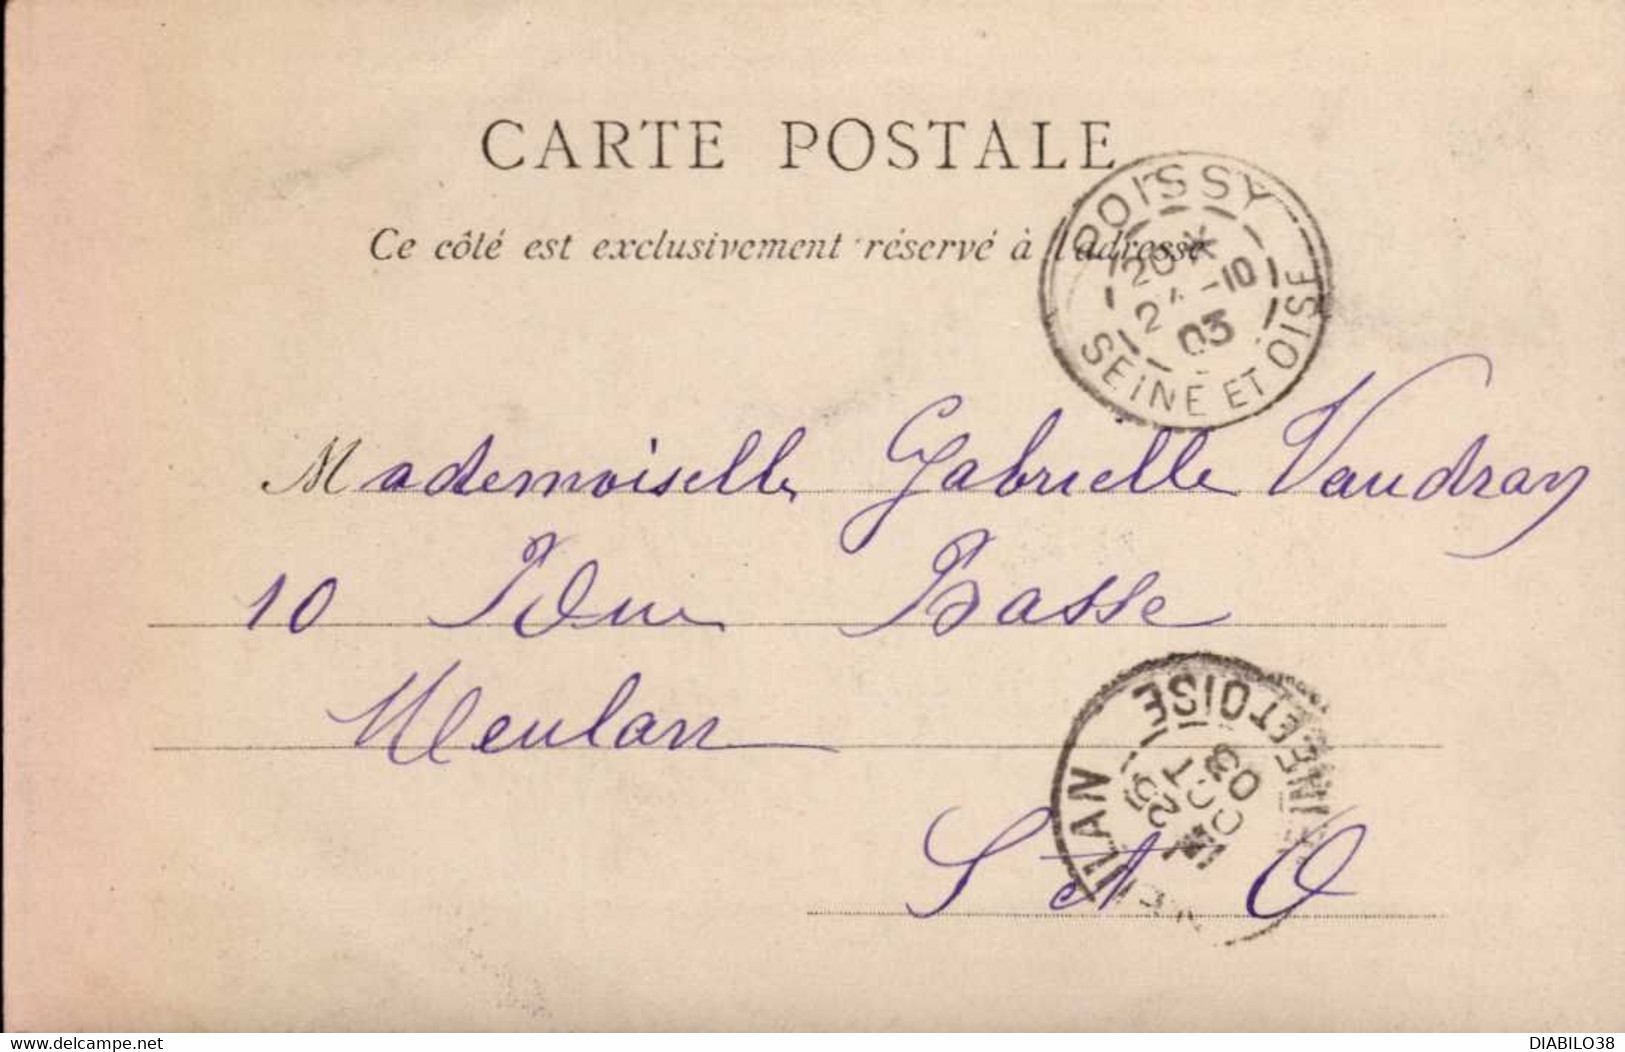 CARTE POSTALE
Ce côté est exclusivement réservé à l'adresse
POISSY
20 *
24 -10
03
SEINE ET OISE
Mademoiselle Gabrielle Vaudray
10 Rue Basse
Meulan
S et O
MEULAN
25
OCT
03
SEINE ET OISE
https://www.delcampe.net
DIABILO38